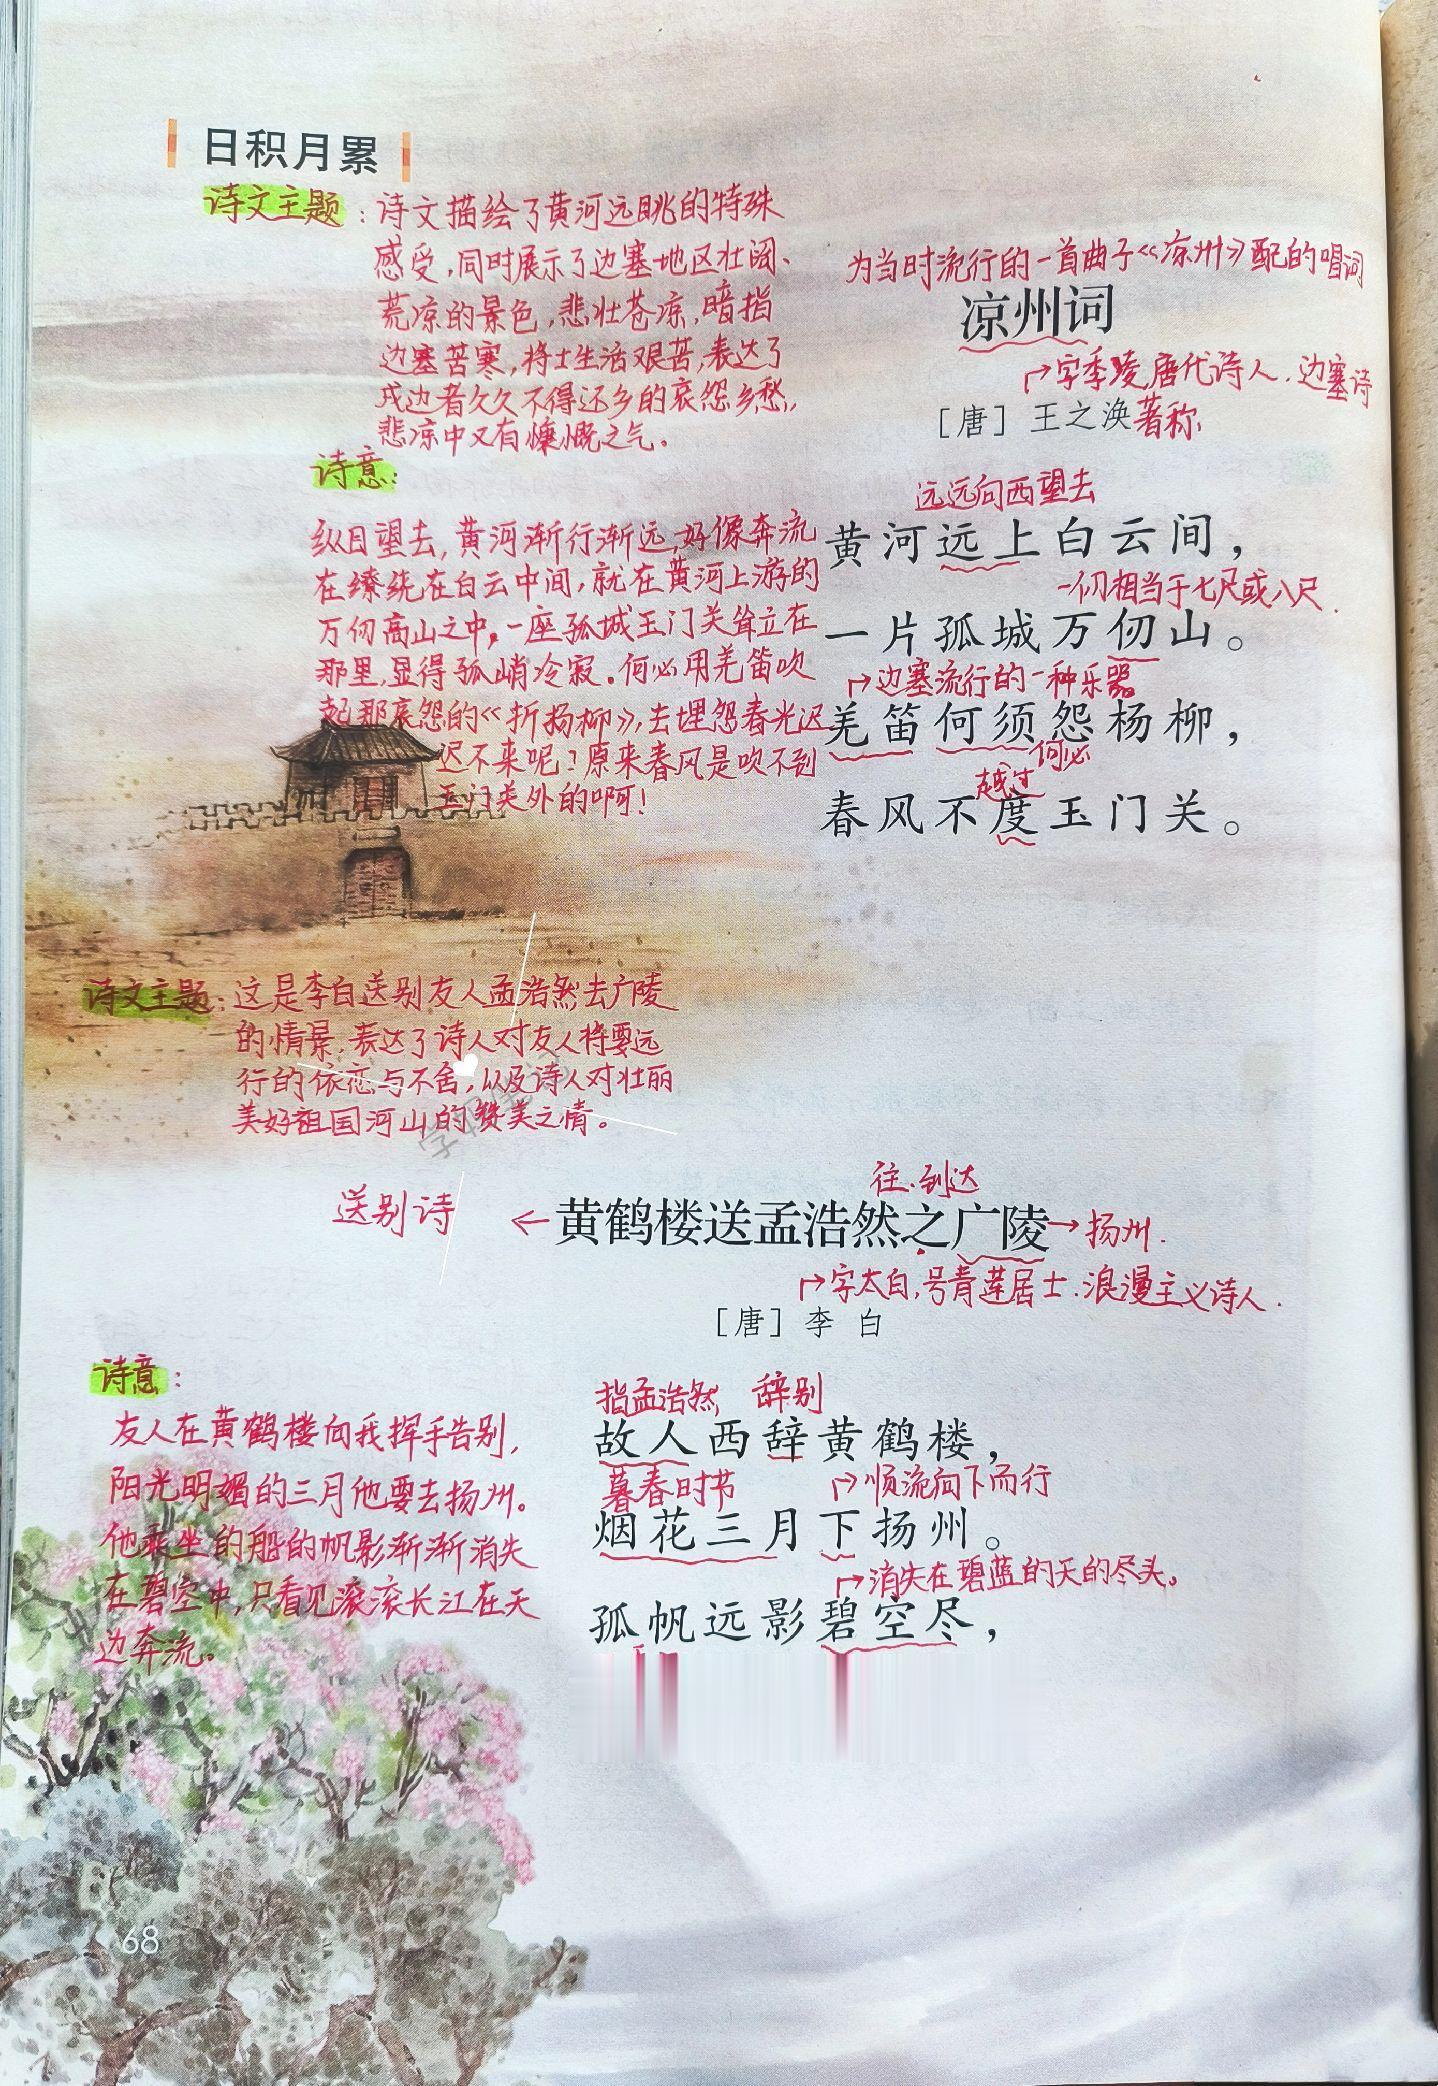 日积月累
诗文主题：诗文描绘了黄河远眺的特殊
感受，同时展示了边塞地区壮阔、
荒凉的景色，悲壮苍凉，暗指
边塞苦寒，将士生活艰苦，表达了
戍边者久久不得还乡的哀怨乡愁，
悲凉中又有慷慨之气。
为当时流行的一首曲子《凉州》配的唱词
凉州词
字季陵，唐代诗人．边塞诗
［唐］王之涣
著称
诗意：
纵目望去，黄河渐行渐远，好像奔流
在缭绕在白云中间，就在黄河上游的
万仞高山之中，一座孤城玉门关耸立在
那里，显得孤峭冷寂。何必用羌笛吹
起那哀怨的《折杨柳》，去埋怨春光迟
迟不来呢？原来春风是吹不到
玉门关外的啊！
远远向西望去
黄河远上白云间，
一仞相当于七尺或八尺．
一片孤城万仞山。
边塞流行的一种乐器
羌笛何须怨杨柳，
何必
越过
春风不度玉门关。
诗文主题：这是李白送别友人孟浩然去广陵
的情景．表达了诗人对友人将要远
行的依恋与不舍，以及诗人对壮丽
美好祖国河山的赞美之情。
往．到达
送别诗
黄鹤楼送孟浩然之广陵
扬州．
字太白，号青莲居士．浪漫主义诗人．
［唐］李 白
诗意：
友人在黄鹤楼向我挥手告别，
阳光明媚的三月他要去扬州。
他乘坐的船的帆影渐渐消失
在碧空中，只看见滚滚长江在天
边奔流。
指孟浩然
辞别
故人西辞黄鹤楼，
暮春时节
顺流向下而行
烟花三月下扬州。
消失在碧蓝的天的尽头。
孤帆远影碧空尽，
68